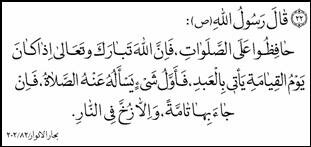 (٢٢) قَالَ رَسُولُ اللهِ (ص):
حَافِظُوا عَلَى الصَّلَوَاتِ، فَإِنَّ اللهَ تَبَارَكَ وَتَعَالَى إِذَا كَانَ
يَوْمُ الْقِيَامَةِ يَأْتِي بِالْعَبْدِ، فَأَوَّلُ شَيْءٍ يَسْأَلُهُ عَنْهُ الصَّلاَةُ، فَإِنْ
جَاءَ بِهَا تَامَّةً، وَإِلاَّ زُخَّ فِي النَّارِ.
بحارالانوار ٢٠٢/٨٢